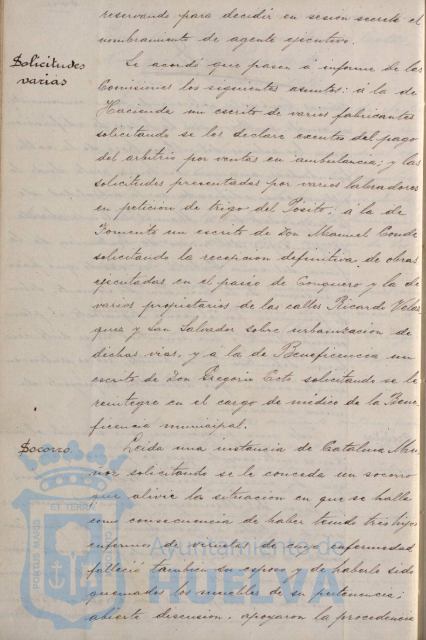 reservando para decidir en sesión secreta el
nombramiento de agente ejecutivo.
Solicitudes
varias
Se acordó que pasen á informe de las
Comisiones los siguientes asuntos: á la de
Hacienda un escrito de varios fabricantes
solicitando se les declare exentos del pago
del arbitrio por ventas en ambulancia; y las
solicitudes presentadas por varios labradores
en petición de trigo del Pósito; á la de
Fomento un escrito de Don Manuel Conde
solicitando la recepción definitiva de obras
ejecutadas en el paseo de Conquero y la de
varios propietarios de las calles Ricardo Velaz
quez y San Salvador sobre urbanización de
dichas vias, y a la de Beneficencia un
escrito de Don Gregorio solicitando se le
reintegre en el cargo de médico de la Bene-
ficencia municipal.
Socorro.
Leida una instancia de Catalina Mu
ñoz solicitando se le conceda un socorro
que alivie la situación en que se halla
como consecuencia de haber tenido tres hijos
enfermos de viruelas de cuya enfermedad
falleció tambien su esposo y de haberle sido
quemados los muebles de su pertenencia;
abierta discusion, apoyaron la procedencia
PORTUS MARIS ET TERRAE CUSTODIA
Ayuntamiento de
HUELVA